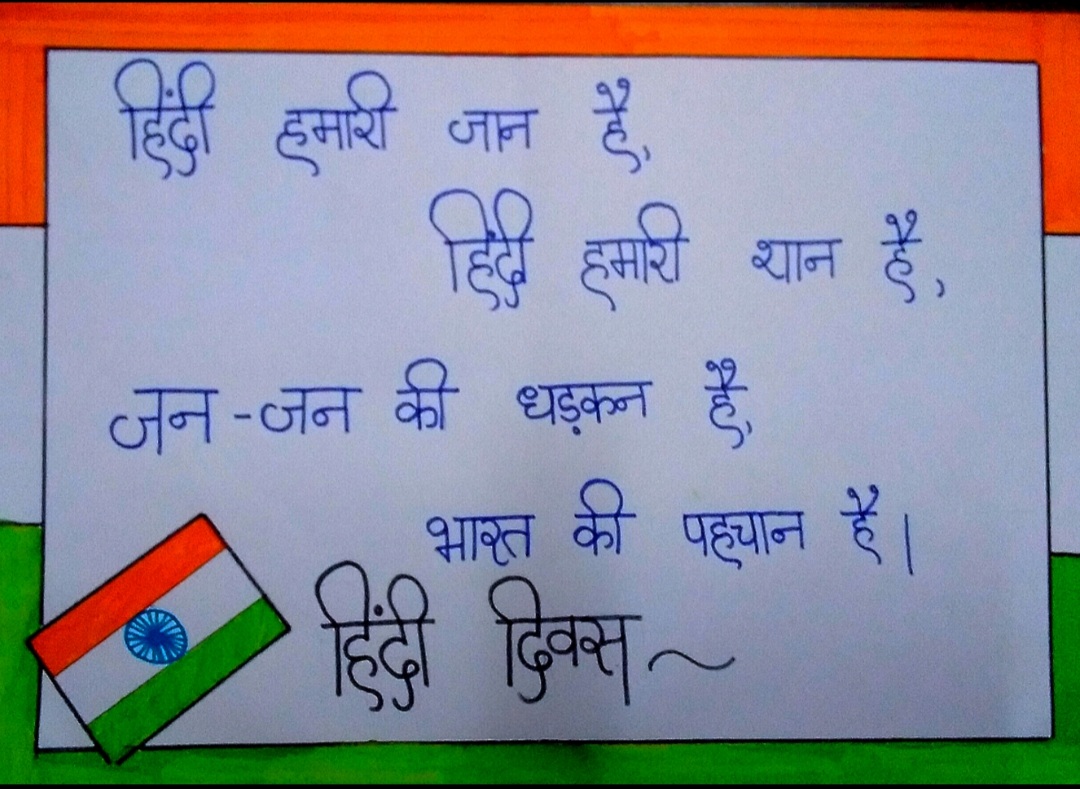 हिंदी हमारी जान है,
हिंदी हमारी शान है,
जन-जन की धड़कन है,
भारत की पहचान है।
हिंदी दिवस ~